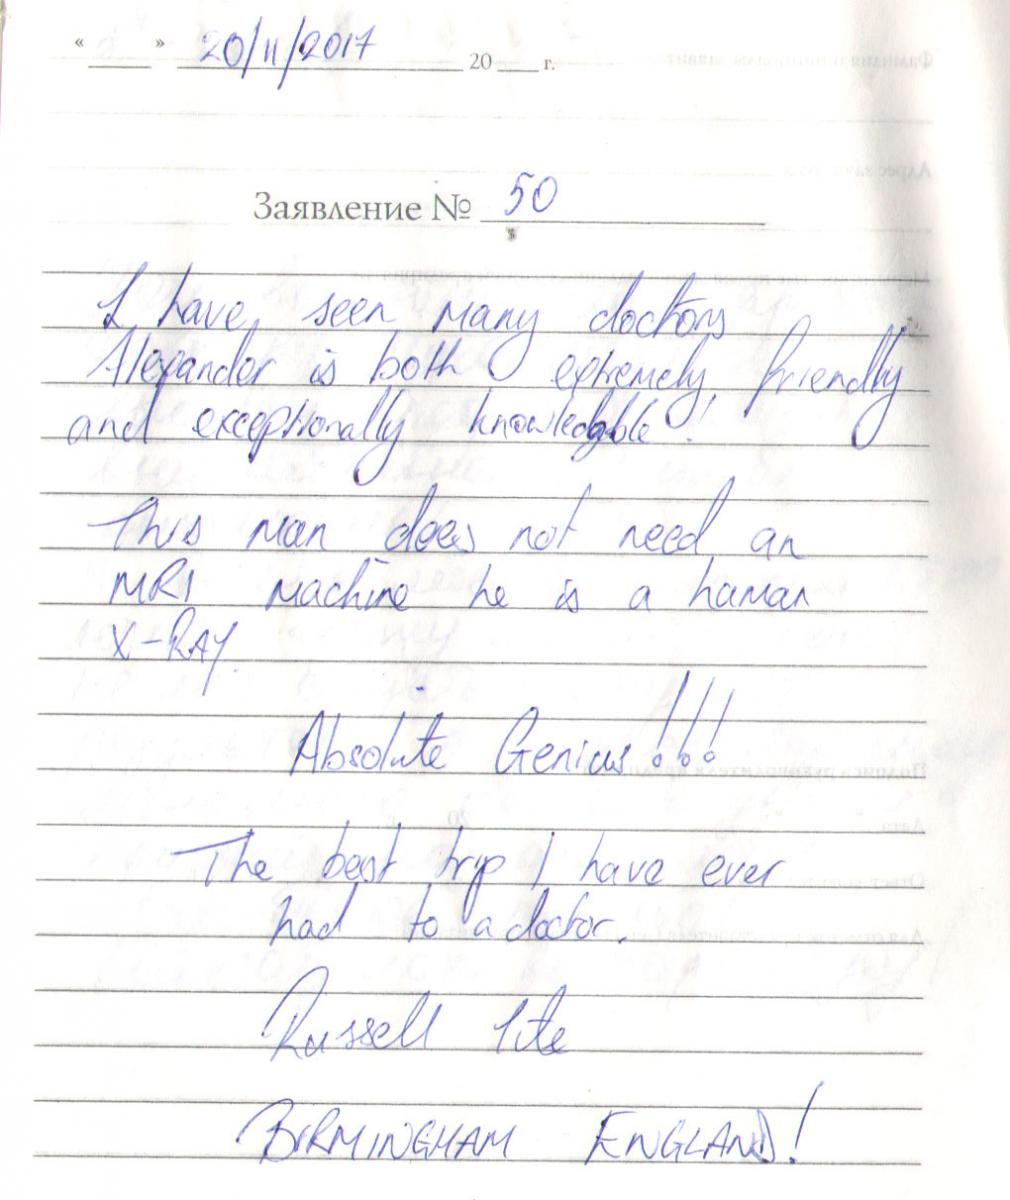 « » 20/11/2017 20 г.
Заявление № 50
I have seen many doctors
Alexander is both extremely friendly
and exceptionally knowledgable!
This man does not need an
MRI machine he is a human
X-RAY.
Absolute Genius!!!
The best trip I have ever
had to a doctor.
Russell
BIRMINGHAM ENGLAND!